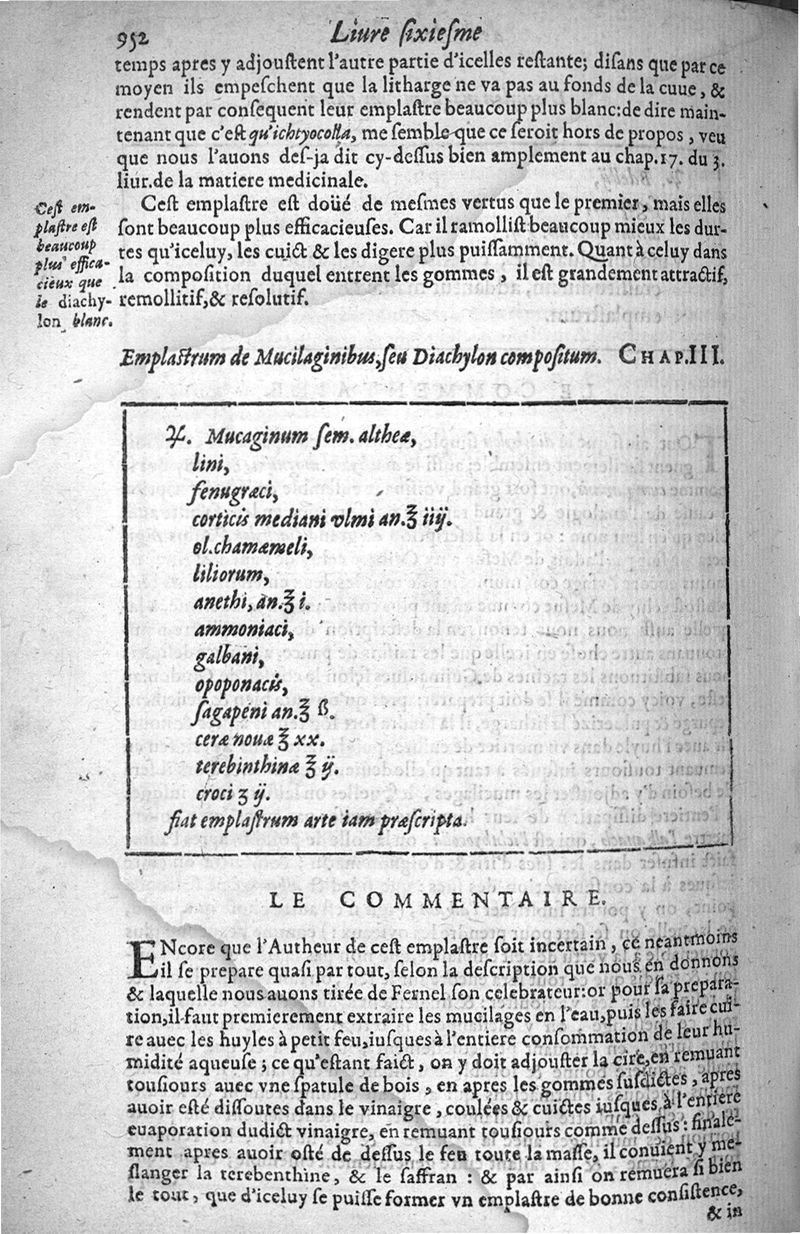 952
Liure sixiesme
temps apres y adjoustent l'autre partie d'icelles restante; disans que par ce
moyen ils empeschent que la litharge ne va pas au fonds de la cuue, &
rendent par consequent leur emplastre beaucoup plus blanc: de dire main-
tenant que c'est qu'ichtyocolla, me semble que ce seroit hors de propos, veu
que nous l'auons des-ja dit cy-dessus bien amplement au chap. 17. du 3.
liur. de la matiere medicinale.
Cest em-
plastre est
beaucoup
plus effica-
cieux que
le diachy-
lon blanc.
Cest emplastre est doüé de mesmes vertus que le premier, mais elles
sont beaucoup plus efficacieuses. Car il ramollist beaucoup mieux les dur-
tes qu'iceluy, les cuict & les digere plus puissamment. Quant à celuy dans
la composition duquel entrent les gommes, il est grandement attractif,
remollitif, & resolutif.
Emplastrum de Mucilaginibus, seu Diachylon compositum. CHAP. III.
♃. Mucaginum sem. altheæ,
lini,
fenugræci,
corticis mediani vlmi an. ℥ iiij.
ol. chamæmeli,
liliorum,
anethi, an. ℥ i.
ammoniaci,
galbani,
opoponacis,
sagapeni an. ℥ ß.
ceræ nouæ ℥ xx.
terebinthinæ ℥ ij.
croci ʒ ij.
fiat emplastrum arte iam præscripta.
LE COMMENTAIRE.
ENcore que l'Autheur de cest emplastre soit incertain, ce neantmoins
il se prepare quasi par tout, selon la description que nous en donnons
& laquelle nous auons tirée de Fernel son celebrateur: or pour sa prepara-
tion, il faut premierement extraire les mucilages en l'eau, puis les faire cui-
re auec les huyles à petit feu, iusques à l'entiere consommation de leur hu-
midité aqueuse; ce qu'estant faict, on y doit adjouster la cire, en remuant
tousiours auec vne spatule de bois, en apres les gommes susdictes, apres
auoir esté dissoutes dans le vinaigre, coulées & cuictes iusques à l'entiere
euaporation dudict vinaigre, en remuant tousiours comme dessus: finale-
ment apres auoir osté de dessus le feu toute la masse, il conuient y me-
slanger la terebenthine, & le saffran: & par ainsi on remuera si bien
le tout, que d'iceluy se puisse former vn emplastre de bonne consistence,
& in